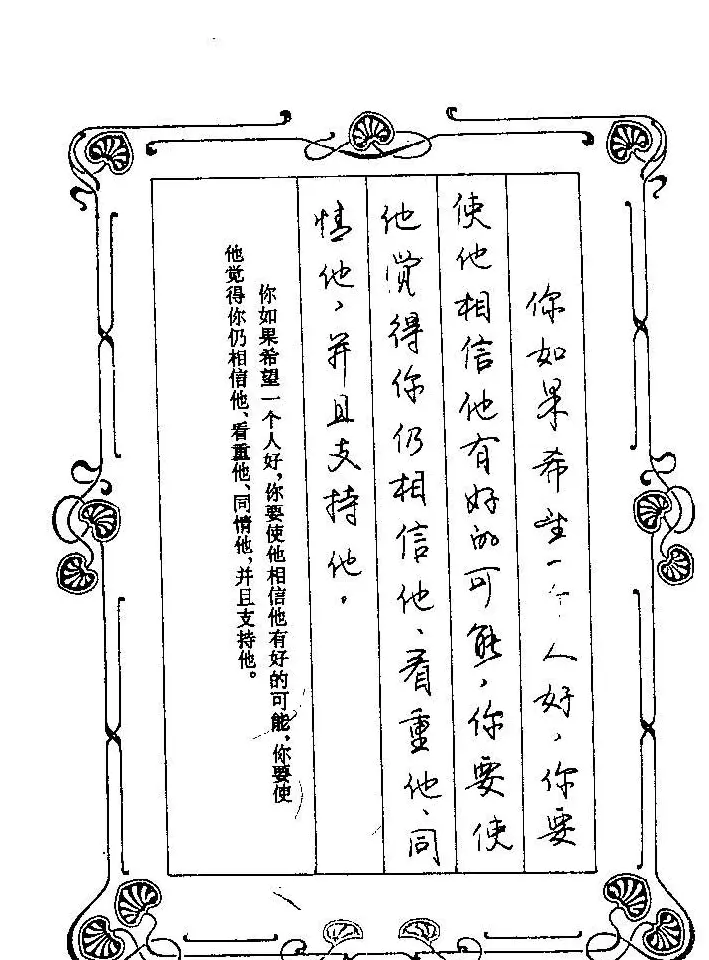 你如果希望一个人好，你要
使他相信他有好的可能，你要使
他觉得你仍相信他、看重他、同
情他，并且支持他。
你如果希望一个人好，你要使他相信他有好的可能，你要使
他觉得你仍相信他、看重他、同情他，并且支持他。